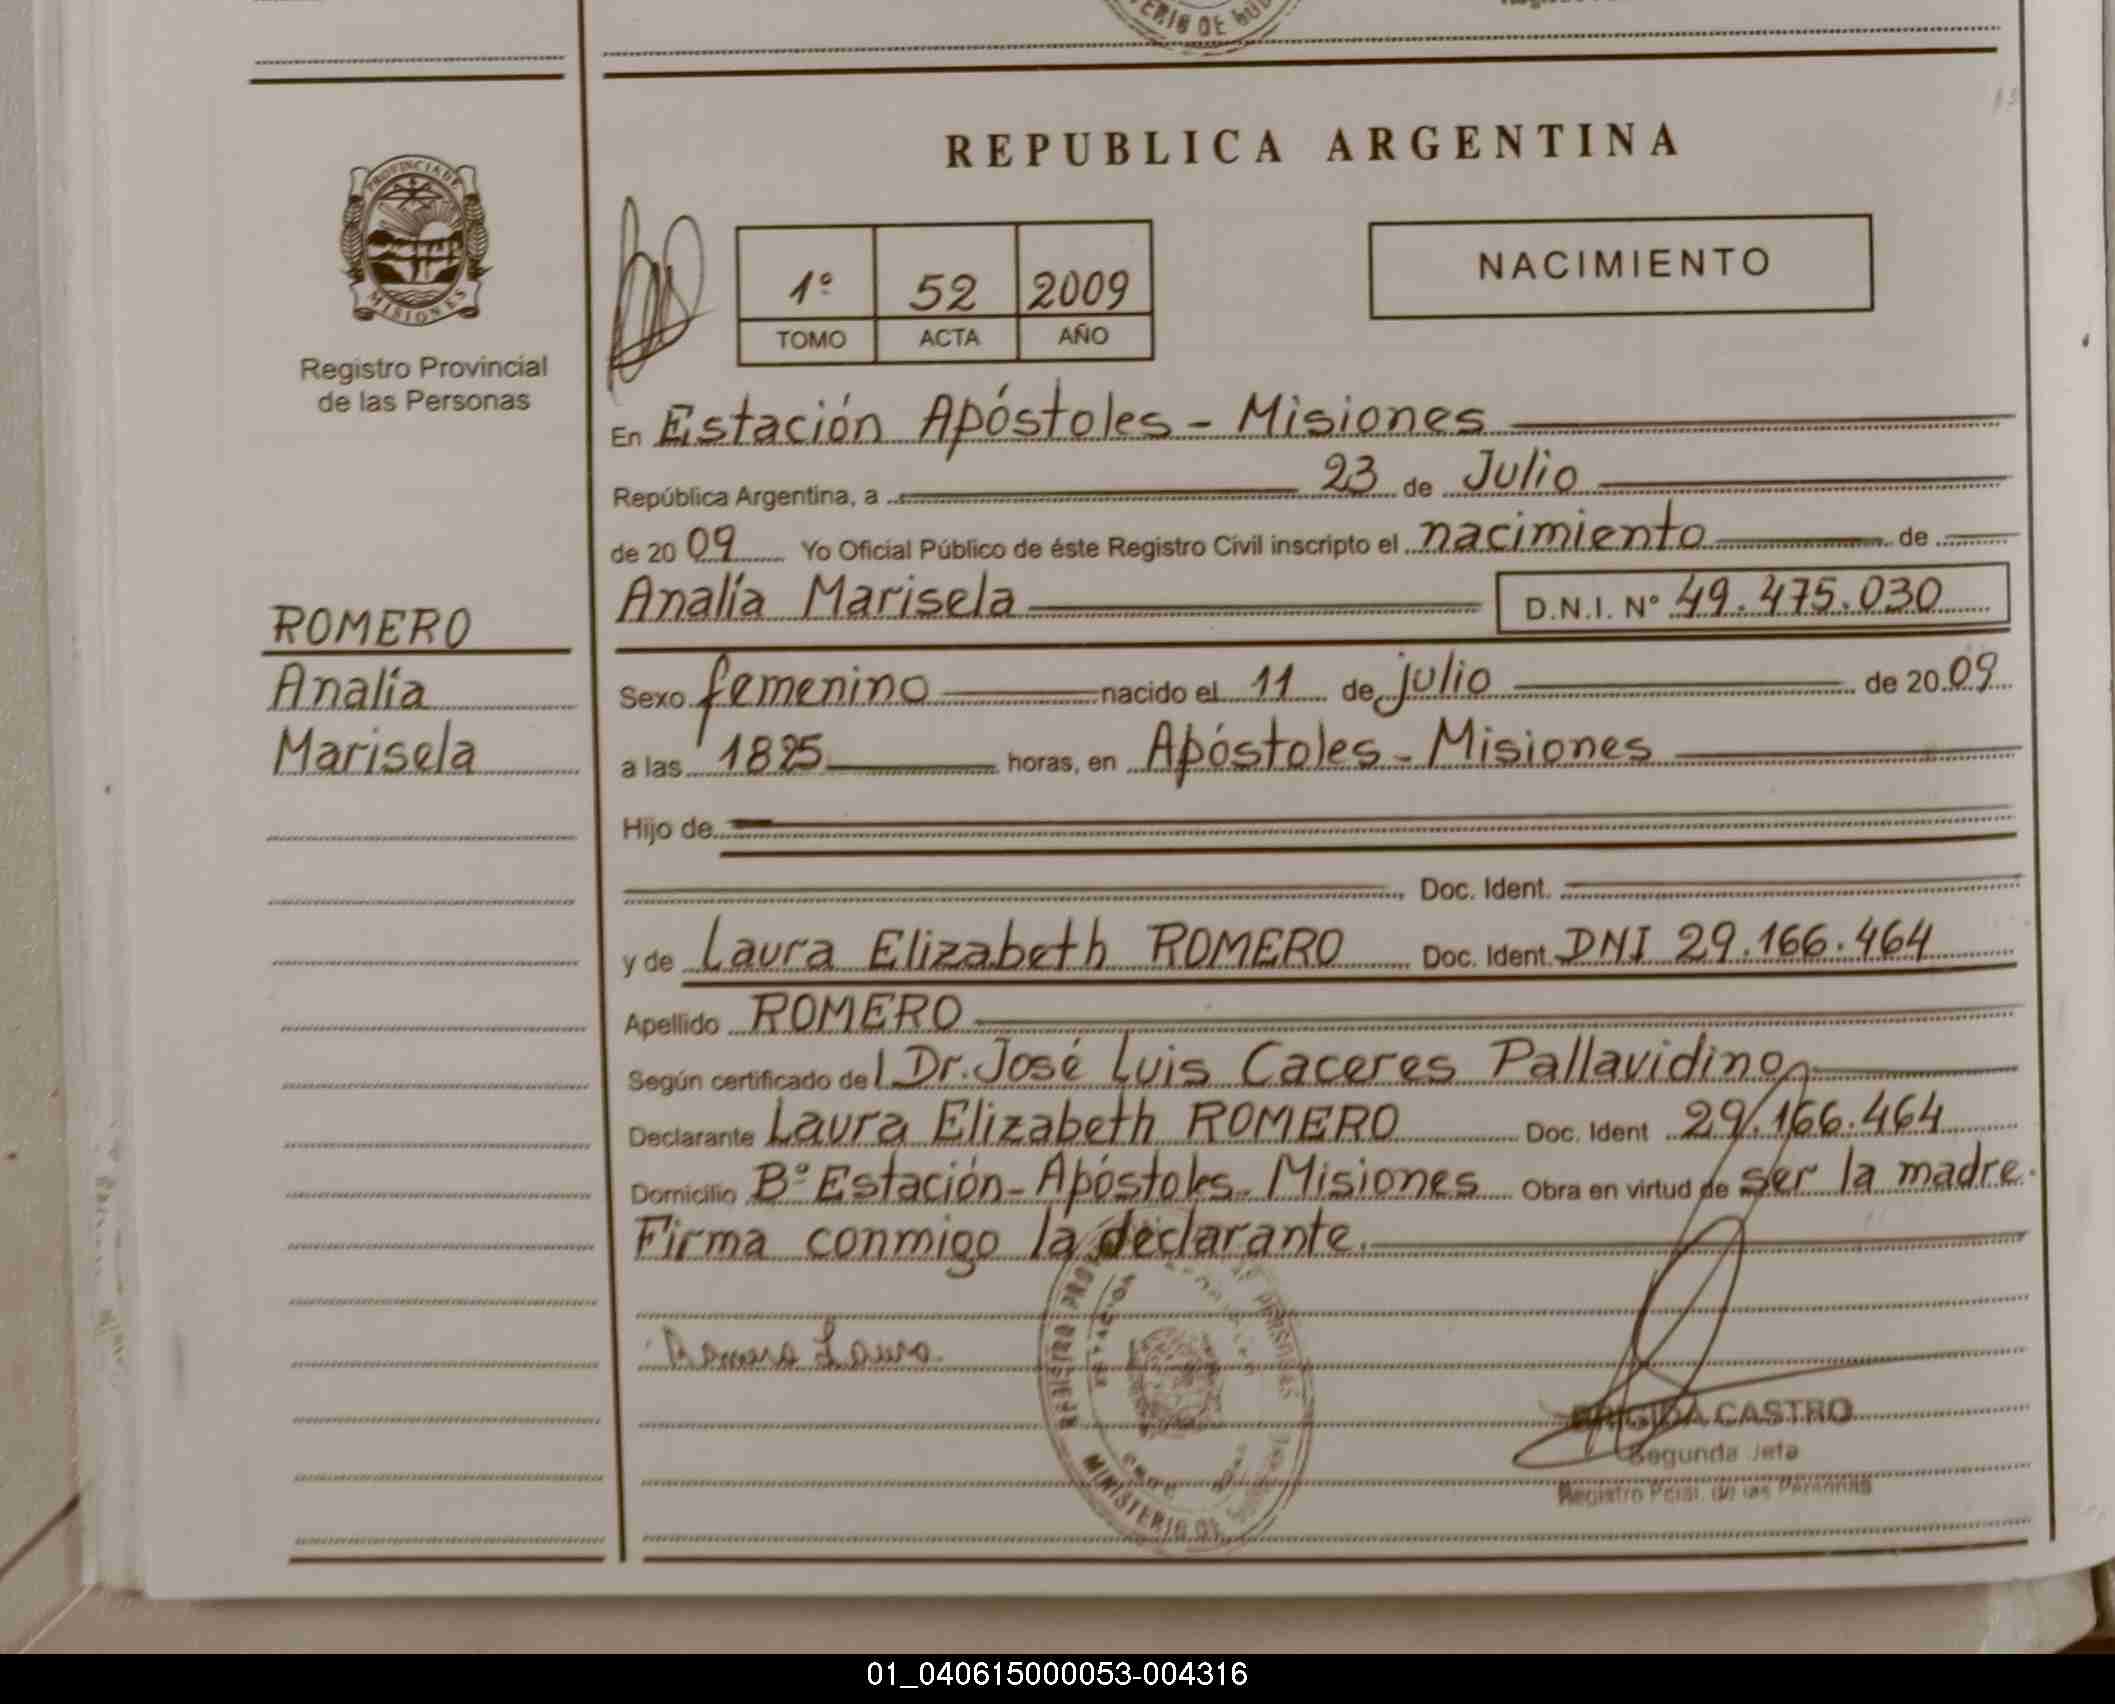 ERIO DE GOB
REPUBLICA ARGENTINA
PROVINCIA DE
MISIONES
Registro Provincial
de las Personas
1º 52 2009
TOMO ACTA AÑO
NACIMIENTO
En Estación Apóstoles - Misiones
República Argentina, a 23 de Julio
de 20 09 Yo Oficial Público de éste Registro Civil inscripto el nacimiento de
Analía Marisela D.N.I. Nº 49.475.030
ROMERO
Analía
Marisela
Sexo femenino nacido el 11 de julio de 20 09
a las 1825 horas, en Apóstoles - Misiones
Hijo de
Doc. Ident.
y de Laura Elizabeth ROMERO Doc. Ident. DNI 29.166.464
Apellido ROMERO
Según certificado del Dr. José Luis Caceres Pallavidino
Declarante Laura Elizabeth ROMERO Doc. Ident 29.166.464
Domicilio Bº Estación - Apóstoles - Misiones Obra en virtud de ser la madre.
Firma conmigo la declarante.
Romero Laura.
REGISTRO PROV PERSONAS
MINISTERIO DE
BRIGIDA CASTRO
Segunda Jefa
Registro Pcial. de las Personas
01_040615000053-004316